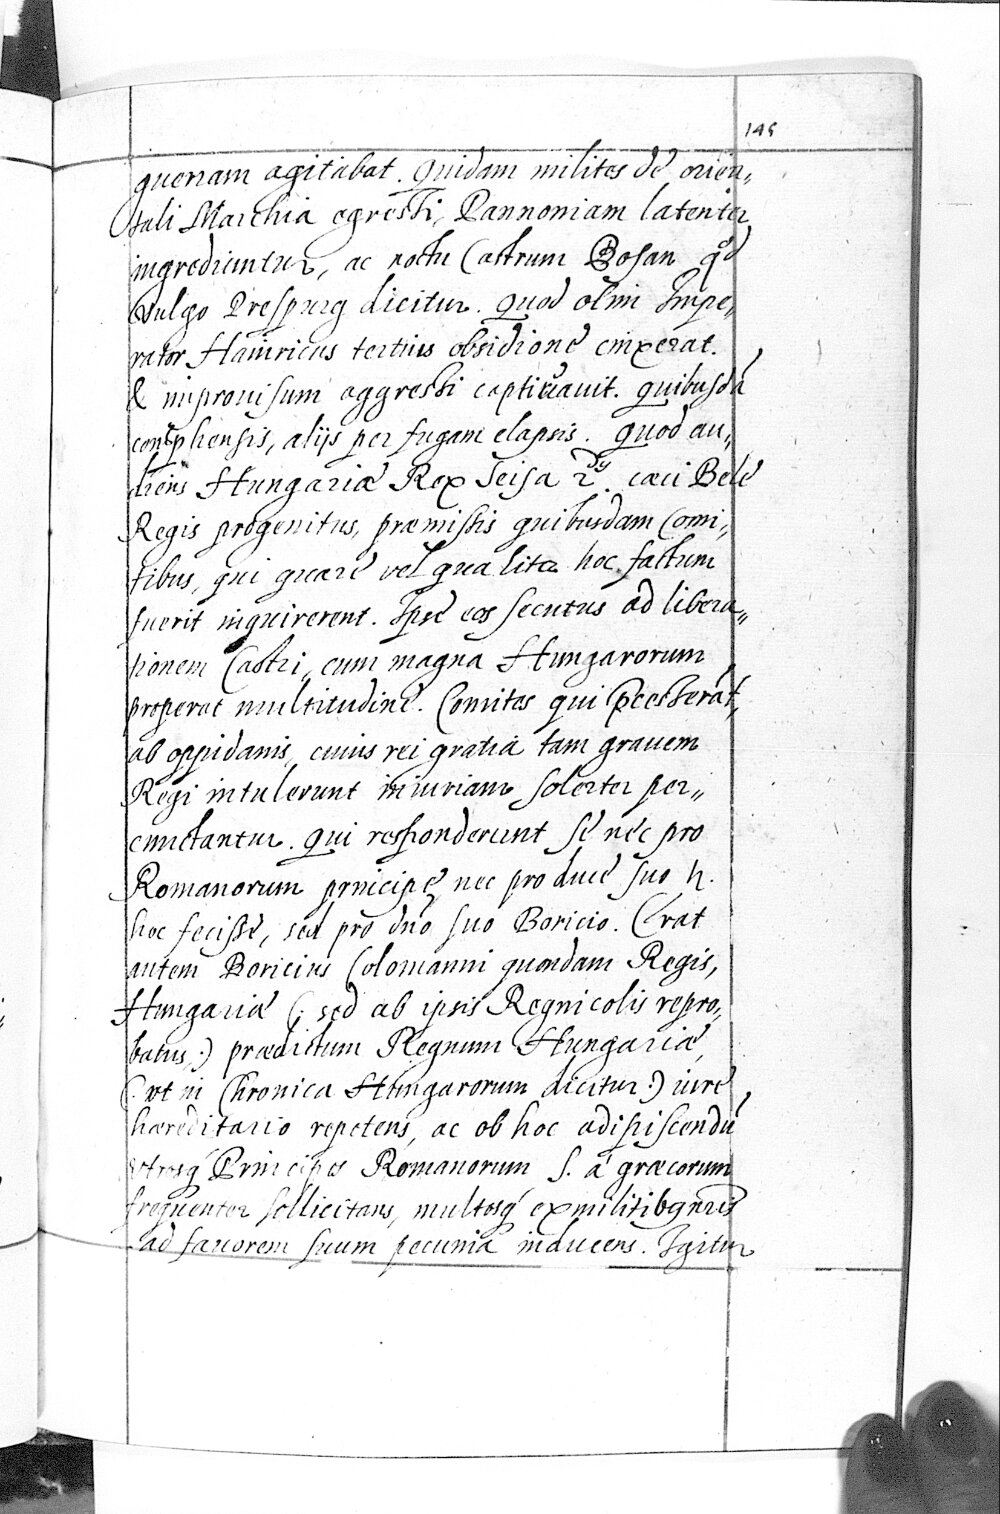 145
guerram agitabat. Quidam milites de orien„
tali Marchia egressi, Pannoniam latenter
ingrediuntur, ac noctu Castrum Bosan qd
vulgo Prespurg dicitur. Quod olim Impe„
rator Hainricus tertius obsidione cinxerat.
& improuisum aggressi captiuauit. quibusdā
comphensis, alijs per fugam elapsis. Quod au„
diens Hungariæ Rex Geisa 2dy cæci Bele
Regis progenitus, præmissis quibusdam Comi„
tibus, qui quare vel qualiter hoc factum
fuerit inquirerent. Ipse eos secutus ad libera„
tionem Castri, cum magna Hungarorum
properat multitudine. Comites qui pcesserāt,
ab oppidanis, cuius rei gratia tam grauem
Regi intulerunt iniuriam solerter per„
cunctantur. Qui responderunt se nec pro
Romanorum principe, nec pro duce suo h.
hoc fecisse, sed pro dno suo Boricio. Erat
autem Boricius Colomanni quondam Regis,
Hungariæ (: sed ab ipsis Regnicolis repro„
batus :) prædictum Regnum Hungariæ,
(: vt in Chronica Hungarorum dicitur :) iure
hæreditario repetens, ac ob hoc adipiscendū
vtrosq Principes Romanorum s. a græcorum
frequenter sollicitans, multosq ex militibq nris
ad fauorem suum pecunia inducens. Igitur